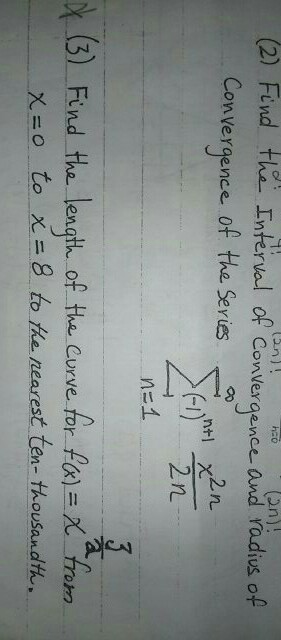 (2n)! n=0 (2n)!
(2) Find the Interval of Convergence and radius of
Convergence of the Series ∞ Σ n=1 (-1)^{n+1} x^{2n} / 2n
(3) Find the length of the Curve for f(x) = x^{3/2} from
x=0 to x=8 to the nearest ten-thousandth.